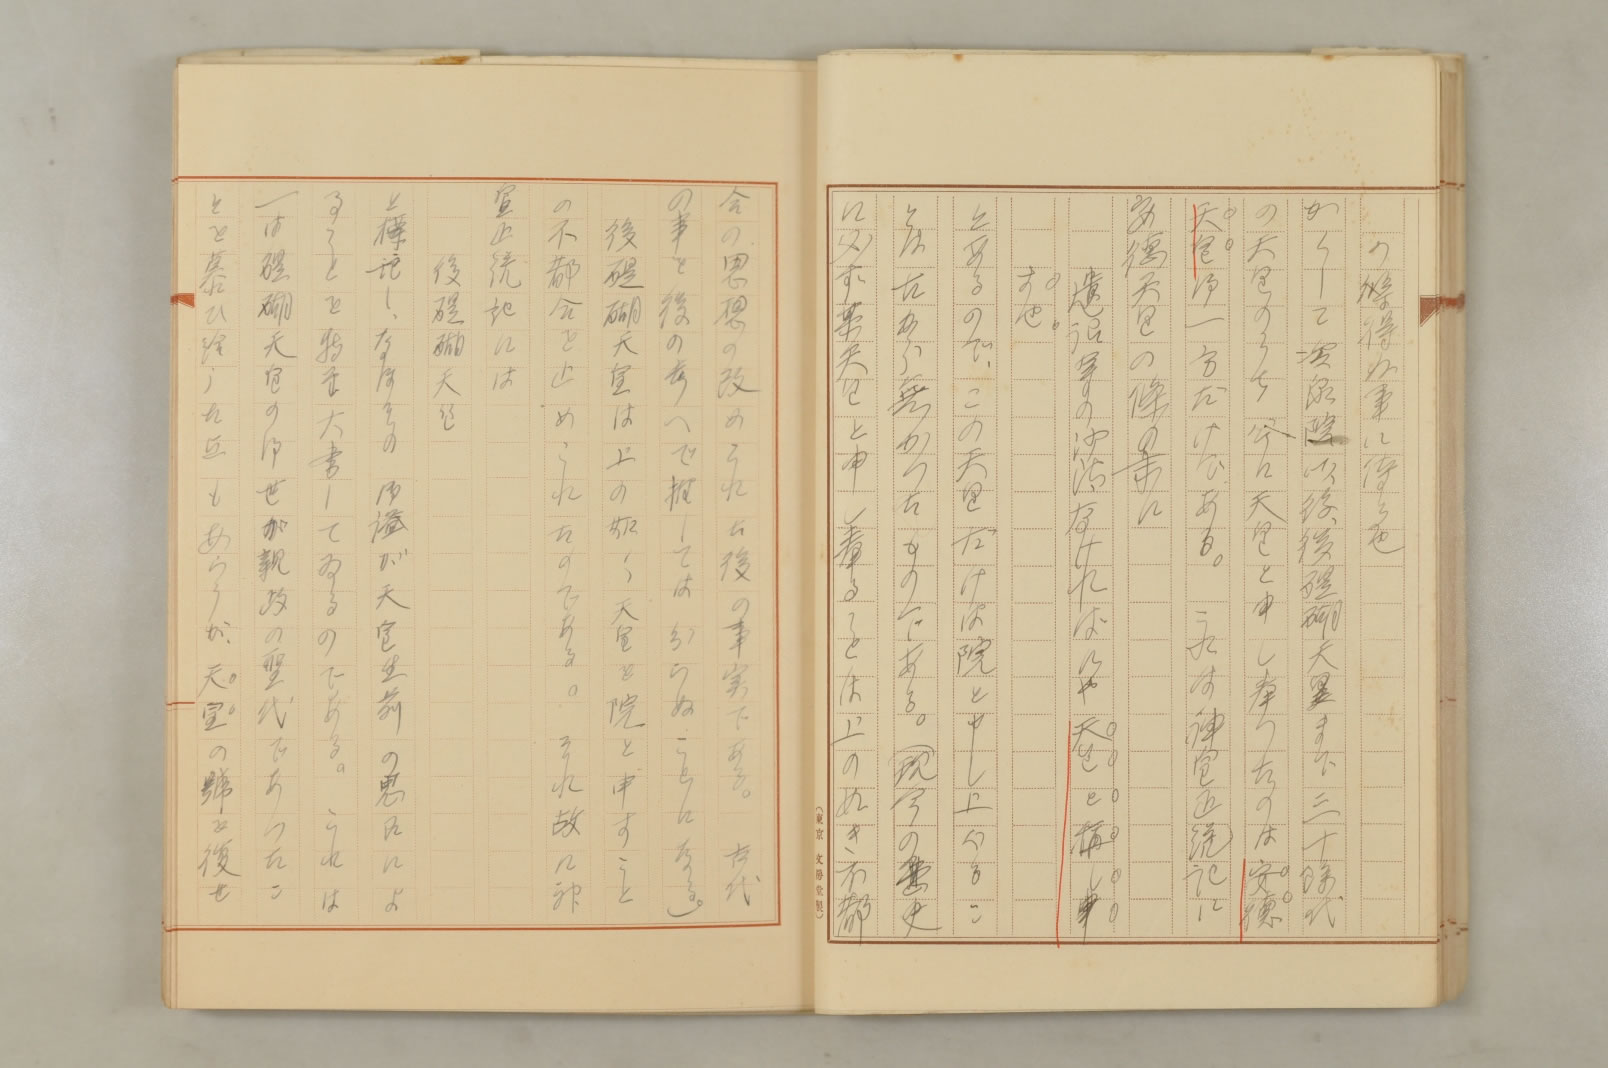 心得ぬ事に侍る也
かくして冷泉院以後、後醍醐天皇まで三十餘代
の天皇のうち公に天皇と申し奉つたのは安徳
天皇御一方だけである。これは神皇正統記に
安徳天皇の條の末に
遺詔等の沙汰なければにや天皇と稱し申
す也。
とあるので、この天皇だけは院と申し上げるこ
とは古から無かつたものである。(現今の歴史
に必ず某天皇と申し奉ることは上の如き不都
合の思想の改められた後の事実である。古代
の事を後の考へで推しては分らぬことになる。)
後醍醐天皇は上の如く天皇を院と申すこと
の不都合を止められたのである。それ故に神
皇正統記には
後醍醐天皇
と標記し、なほその御謚が天皇生前の思召によ
ることを特に大書してゐるのである。これは
一は醍醐天皇の御世が親政の聖代であつたこ
とを慕ひ給うた点もあらうが、天皇の號を復せ
(東京 文房堂製)